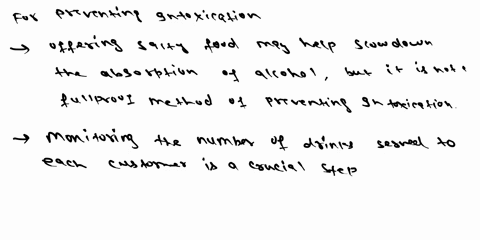 For preventing intoxication
→ offering salty food may help slowdown
the absorption of alcohol, but it is not a
fullproof method of preventing intoxication.
→ Monitoring the number of drinks served to
each customer is a crucial step